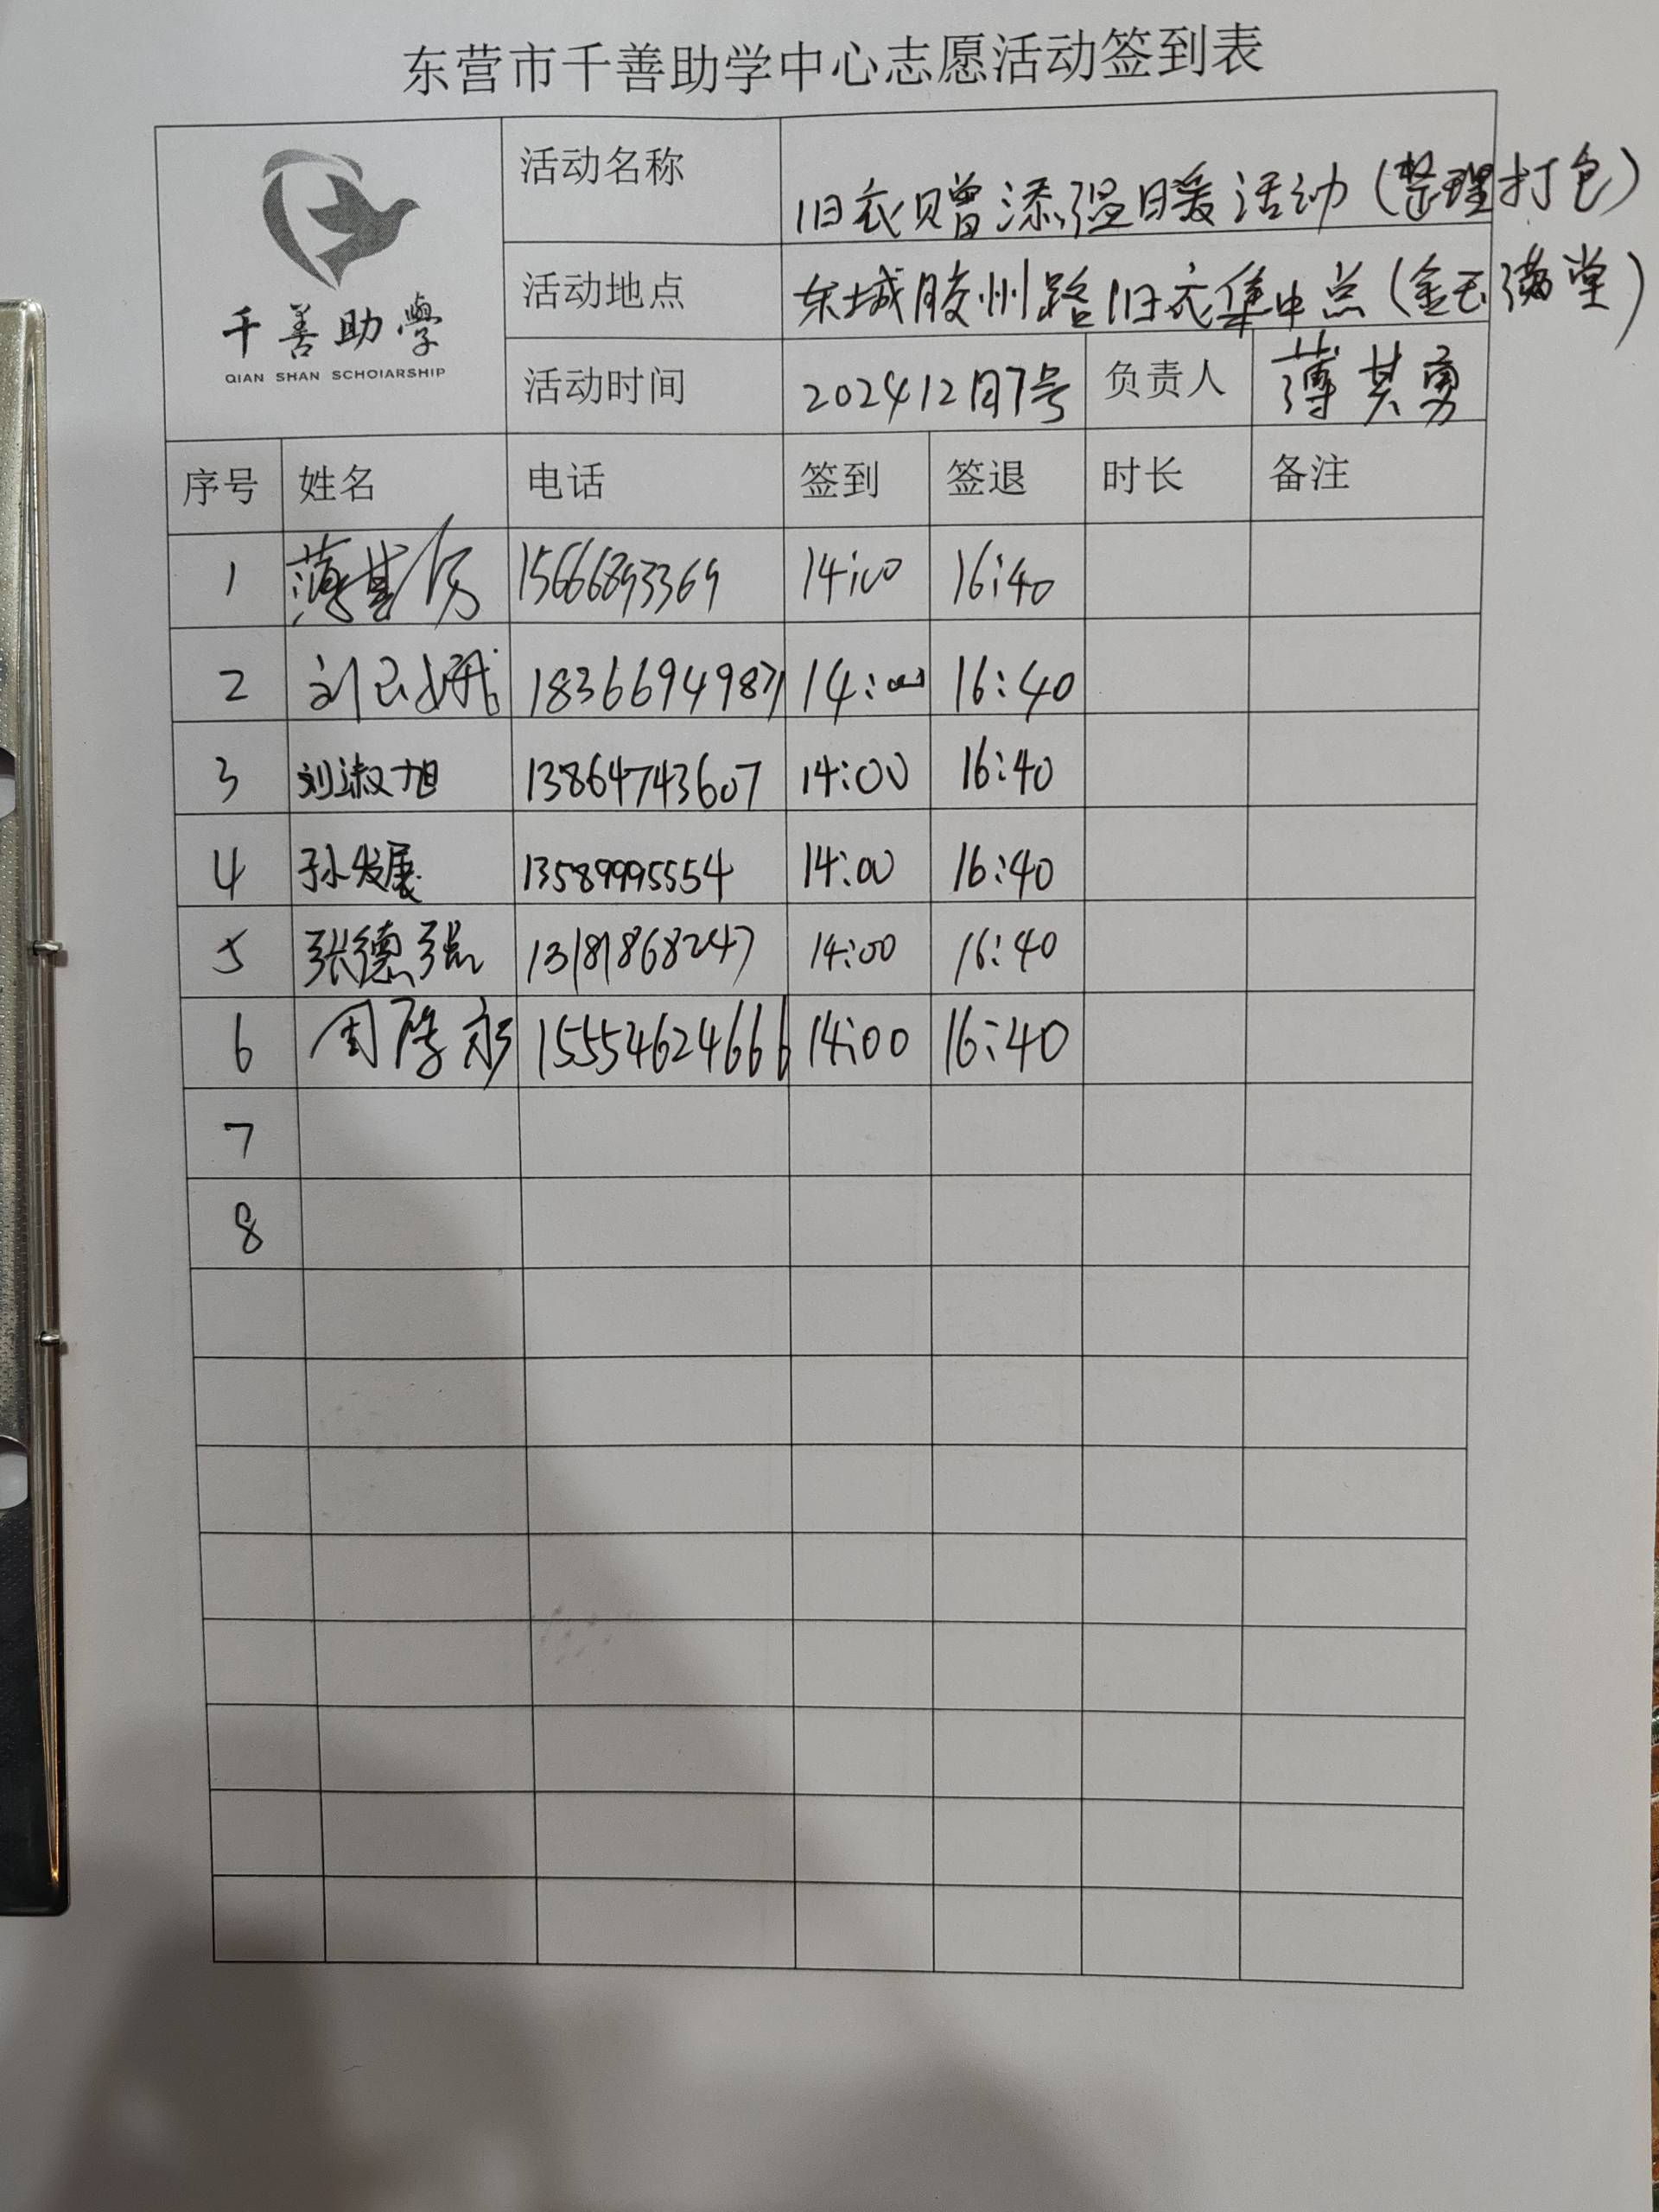 东营市千善助学中心志愿活动签到表
千善助學
QIAN SHAN SCHOIARSHIP
活动名称 旧衣赠添温暖活动(整理打包)
活动地点 东城胶州路旧衣集中点(金玉满堂)
活动时间 202412月7号 负责人 薄其勇
序号 姓名 电话 签到 签退 时长 备注
1 15666893369 14:00 16:40
2 14:00 16:40
3 刘淑旭 13864743607 14:00 16:40
4 孙发展 13589995554 14:00 16:40
5 张德强 13181868247 14:00 16:40
6 15554624666 14:00 16:40
7
8